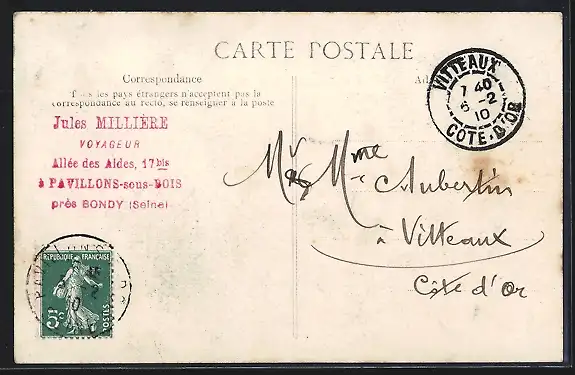 CARTE POSTALE
Correspondance
Tous les pays étrangers n'acceptent pas la
correspondance au recto, se renseigner à la poste
Jules MILLIÈRE
VOYAGEUR
Allée des Aides, 17 bis
à PAVILLONS-sous-BOIS
près BONDY (Seine)
VITTEAUX
7 40
6 -2
10
CÔTE-D'OR
Mr & Mme Aubertin
à Vitteaux
Côte d'Or
RÉPUBLIQUE FRANÇAISE
5c
POSTES